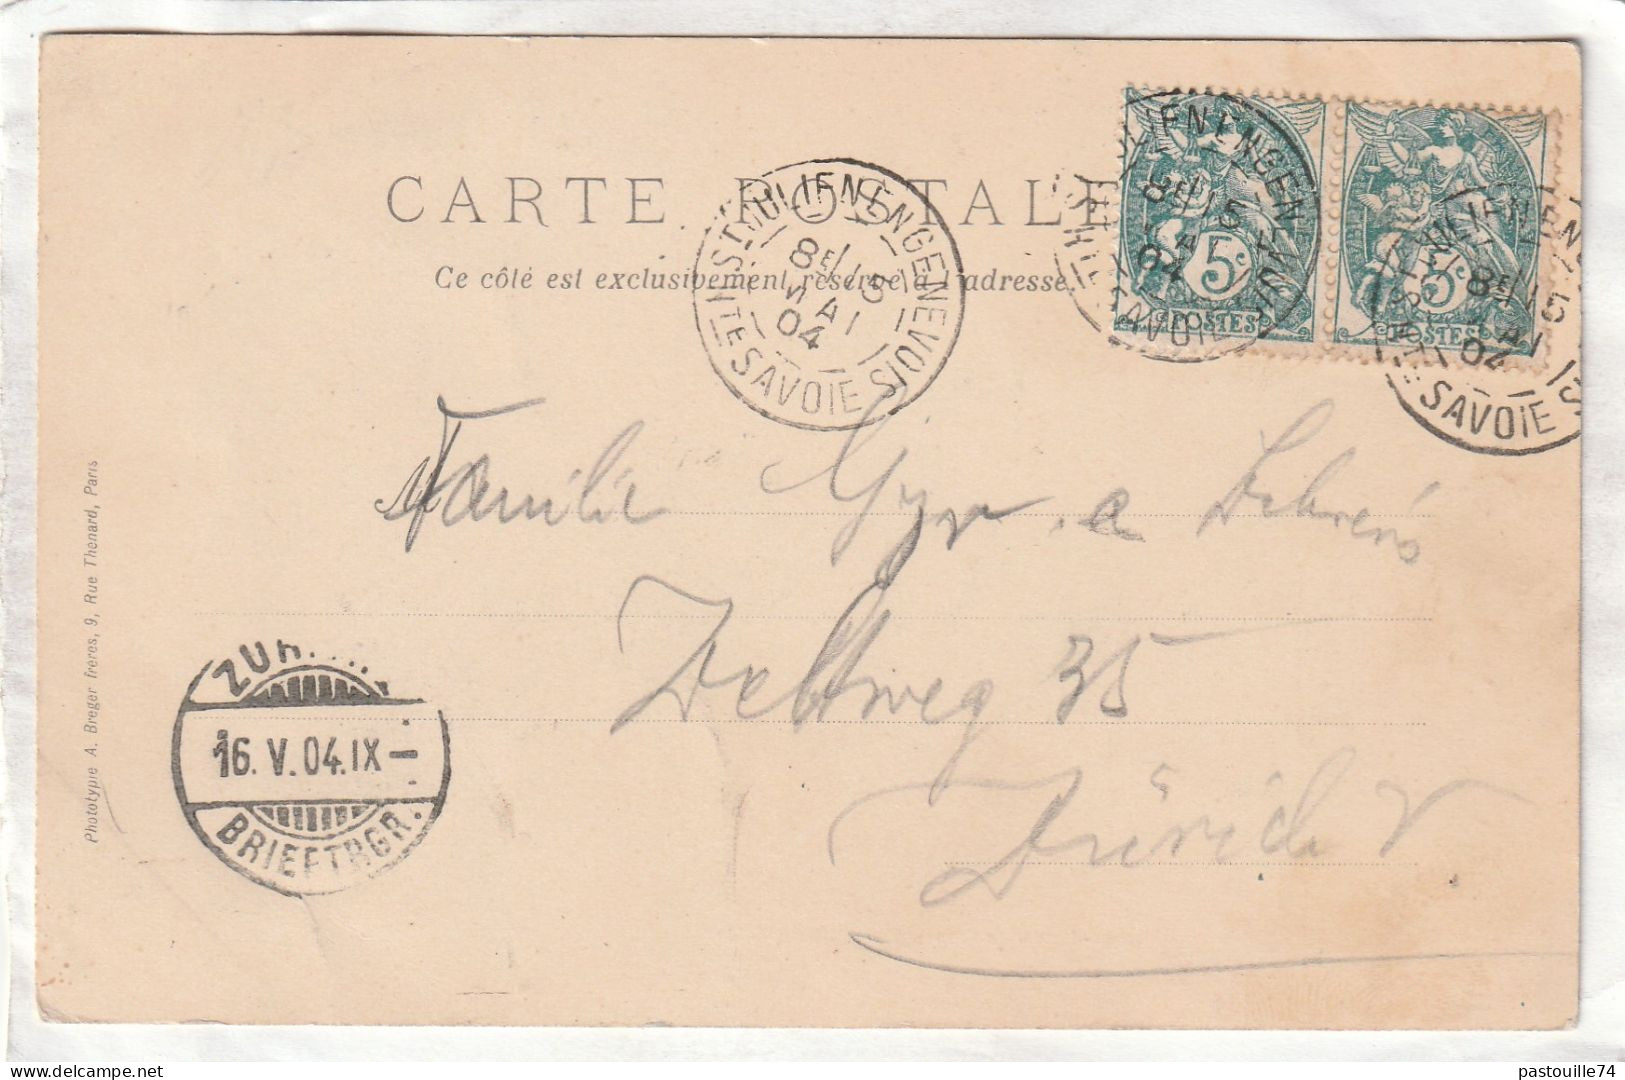 CARTE POSTALE
Ce côté est exclusivement réservé à l'adresse.
ST JULIEN EN GENEVOIS
8E 15
MAI
04
HTE SAVOIE
ST JULIEN EN GENEVOIS
8E 15
MAI
04
HTE SAVOIE
ST JULIEN EN
8E 15
MAI
04
HTE SAVOIE
5c
POSTES
5c
POSTES
M
Familie
Deltweg 35
Zürich V
ZÜR
16. V. 04. IX-
BRIEFTRGR.
Phototypie A. Breger frères, 9, Rue Thenard, Paris
pastouille74